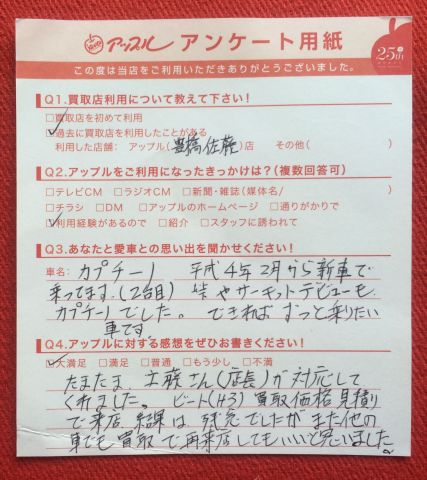 アップル アンケート用紙
25th
この度は当店をご利用いただきありがとうございました。
Q1.買取店利用について教えて下さい!
□買取店を初めて利用
☑過去に買取店を利用したことがある
利用した店舗: アップル(豊橋佐藤)店 その他( )
Q2.アップルをご利用になったきっかけは?(複数回答可)
□テレビCM □ラジオCM □新聞・雑誌(媒体名/ )
□チラシ □DM □アップルのホームページ □通りがかりで
☑利用経験があるので □紹介 □スタッフに誘われて
Q3.あなたと愛車との思い出を聞かせください!
車名: カプチーノ 平成4年2月から新車で
乗ってます.(2台目) 峠やサーキットデビューも
カプチーノでした。 できればずっと乗りたい
車です。
Q4.アップルに対する感想をぜひお書きください!
☑大満足 □満足 □普通 □もう少し □不満
たまたま、さん(店長)が対応して
くれました。 ビート(H3)買取価格見積り
で来店 結果は 残念でしたが また他の
車でも買取で再来店してもいいと思いました。